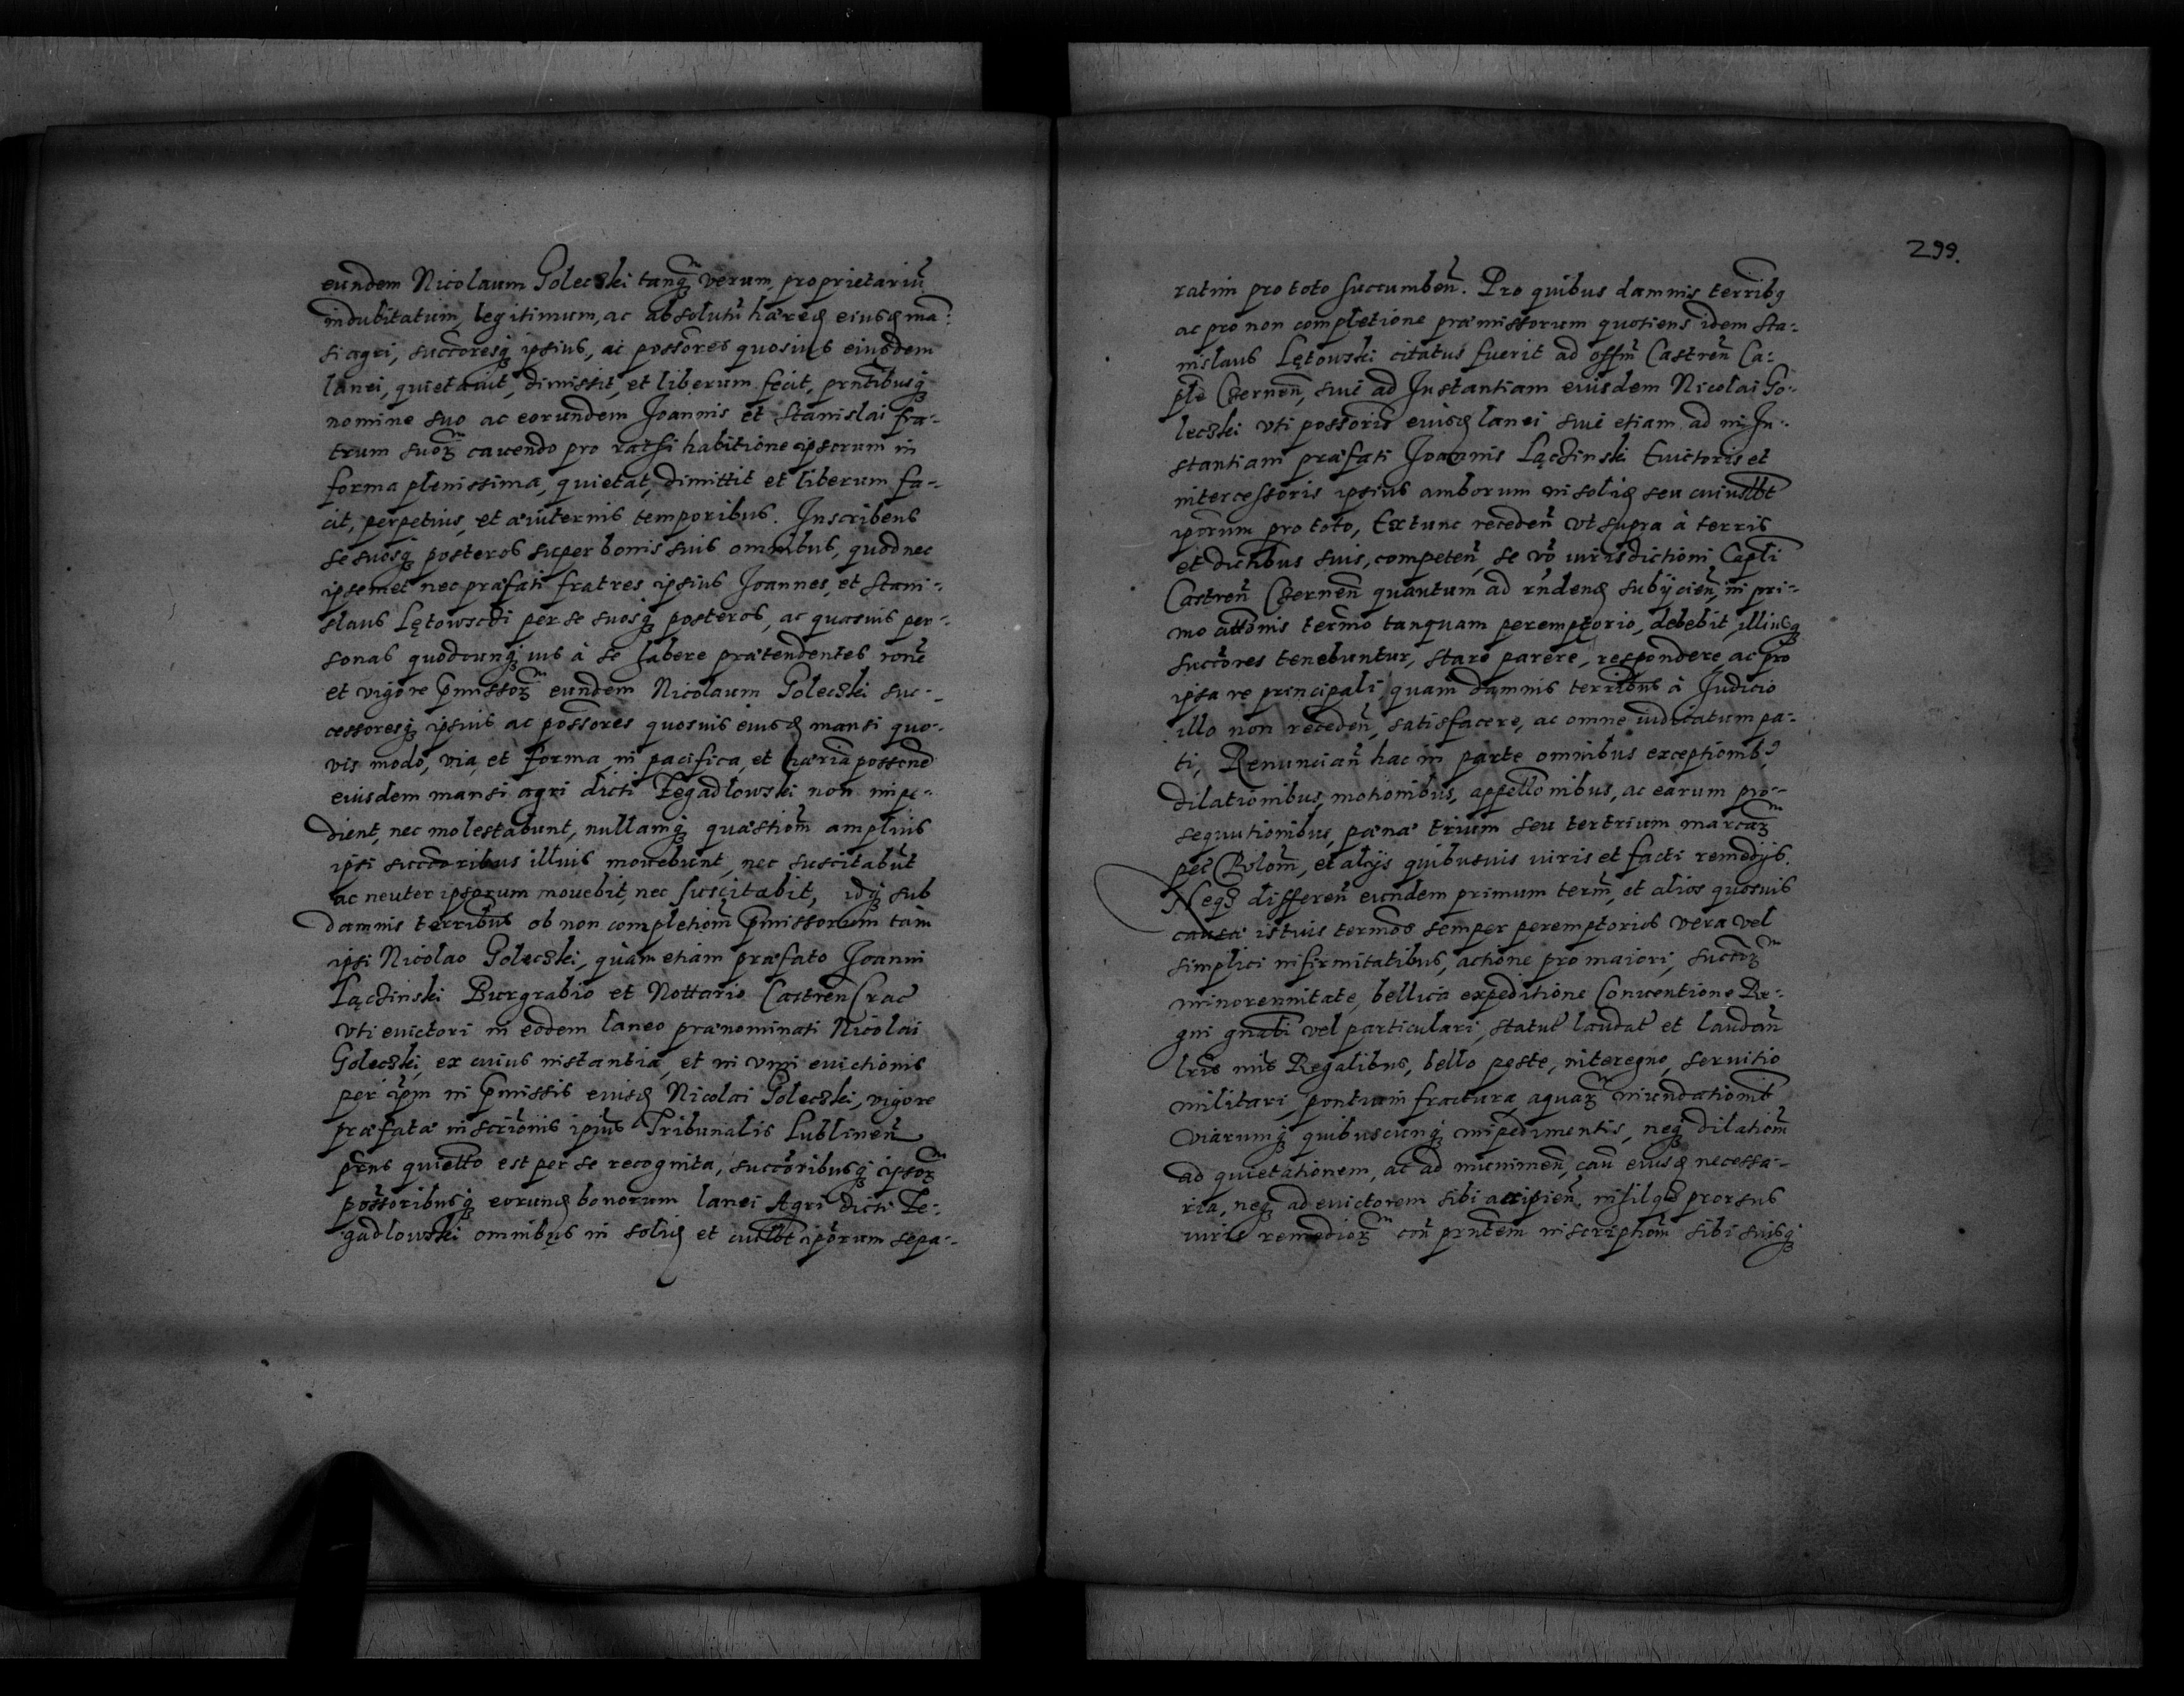 eundem Nicolaum Golecski tanq₃ verum proprietariũ
indubitatum, legitimum, ac absolutũ hæred eiusd man-
si agri, succõresq₃ ipsius, ac possõres quosuis eiusdem
lanei, quietauit, dimissit, et liberum fecit, prñtibusq₃
nomine suo ac eorundem Joannis et Stanislai fra-
trum suoꝝ cauendo pro rathi habitione ipsorum in
forma plenissima, quietat, dimittit et liberum fa-
cit, perpetuis, et æuiternis temporibus. Inscribens
se suosq₃ posteros super bonis suis omnibus, quod nec
ipsemet nec præfati fratres ipsius Joannes, et Stani-
slaus Lętowscki per se suosq₃ posteros, ac quasuis per-
sonas quodcunq₃ ius à se habere prætendentes rõne
et vigore p̃missoꝝ eundem Nicolaum Golecski suc-
cessoresq₃ ipsius ac possõres quosuis eiusd mansi quo-
vis modo, via, et forma in pacifica, et hæria possend
eiusdem mansi agri dicti Zegadlowski non impe-
dient, nec molestabunt, nullamq₃ quæstiom̃ amplius
ipsi succõribus illius mouebunt, nec suscitabũt
ac neuter ipsorum mouebit, nec suscitabit, idq₃ sub
damnis terribus ob non completiom̃ p̃missorum tam
ipsi Nicolao Golecski, quàm etiam præfato Joanni
Łączinski Burgrabio et Nottario Castreñ Crac̃
vti evictori in eodem laneo prænominati Nicolai
Golecski, ex cuius instantia, et in vim evictionis
per ip̃m in p̃missis eiusd Nicolai Golecski, vigore
præfatæ inscriõnis ipius Tribunalis Lublineñ
prñs quietõ est per se recognita, succõribusq₃ ipsoꝝ
possõribusq₃ eorund bonorum lanei Agri dicti Ze-
gadlowski omnibus in solid et cuilbt ipõrum sepa-
299.
ratim pro toto succumbeñ. Pro quibus damnis terribq
ac pro non completione præmissorum quotiens idem Sta-
nislaus Lętowski citatus fuerit ad offm̃ Castreñ Ca-
ple Czerneñ, siue ad Instantiam eiusdem Nicolai Go-
lecski vti possõris eiusd lanei siue etiam ad in In-
stantiam præfati Joannis Łączinski Euictoris et
intercessoris ipsius amborum in solid seu cuiuslbt
ipõrum pro toto, Extunc recedeñ vt supra à terris
et dictibus suis, competeñ, se võ iurisdictioni Capli
Castreñ Czerneñ quantum ad rñdend subijcieñ, in pri-
mo attõnis termo tanquam peremptorio, debebit, illiusq₃
succõres tenebuntur, stare parere, respondere, ac pro
ipsa re principali quam damnis terribus à Judicio
illo non recedeñ, satisfacere, ac omne iudicatum pa-
ti, Renunciañ hac in parte omnibus exceptionib₉
dilationibus, motionibus, appellõnibus, ac earum pro-
sequutionibus, pæna trium seu tertrium marcaꝝ
pec̃ Polom̃, et alijs quibusuis iuris et facti remedijs.
Neq₃ differeñ eundem primum term̃, et alios quosuis
causæ istius termos semper peremptorios vera vel
simplici infirmitatibus, actione pro maiori, succõꝝ
minorennitate, bellica expeditione Conuentione Re-
gni gnãli vel particulari, statut̃ laudat̃ et laudañ
lr̃is mis Regalibus, bello peste, interegno, seruitio
militari, pontium fractura, aquaꝝ inundationib̃
viarumq₃ quibuscunq₃ impedimentis, neq₃ dilatiom̃
ad quietationem, ac ad munimeñ, cau̅ eiusd necessa-
ria, neq₃ ad evictorem sibi accipieñ, nihilq₃ prorsus
iuris remedioꝝ coñ prñtem inscriptiom̃ sibi suisq₃